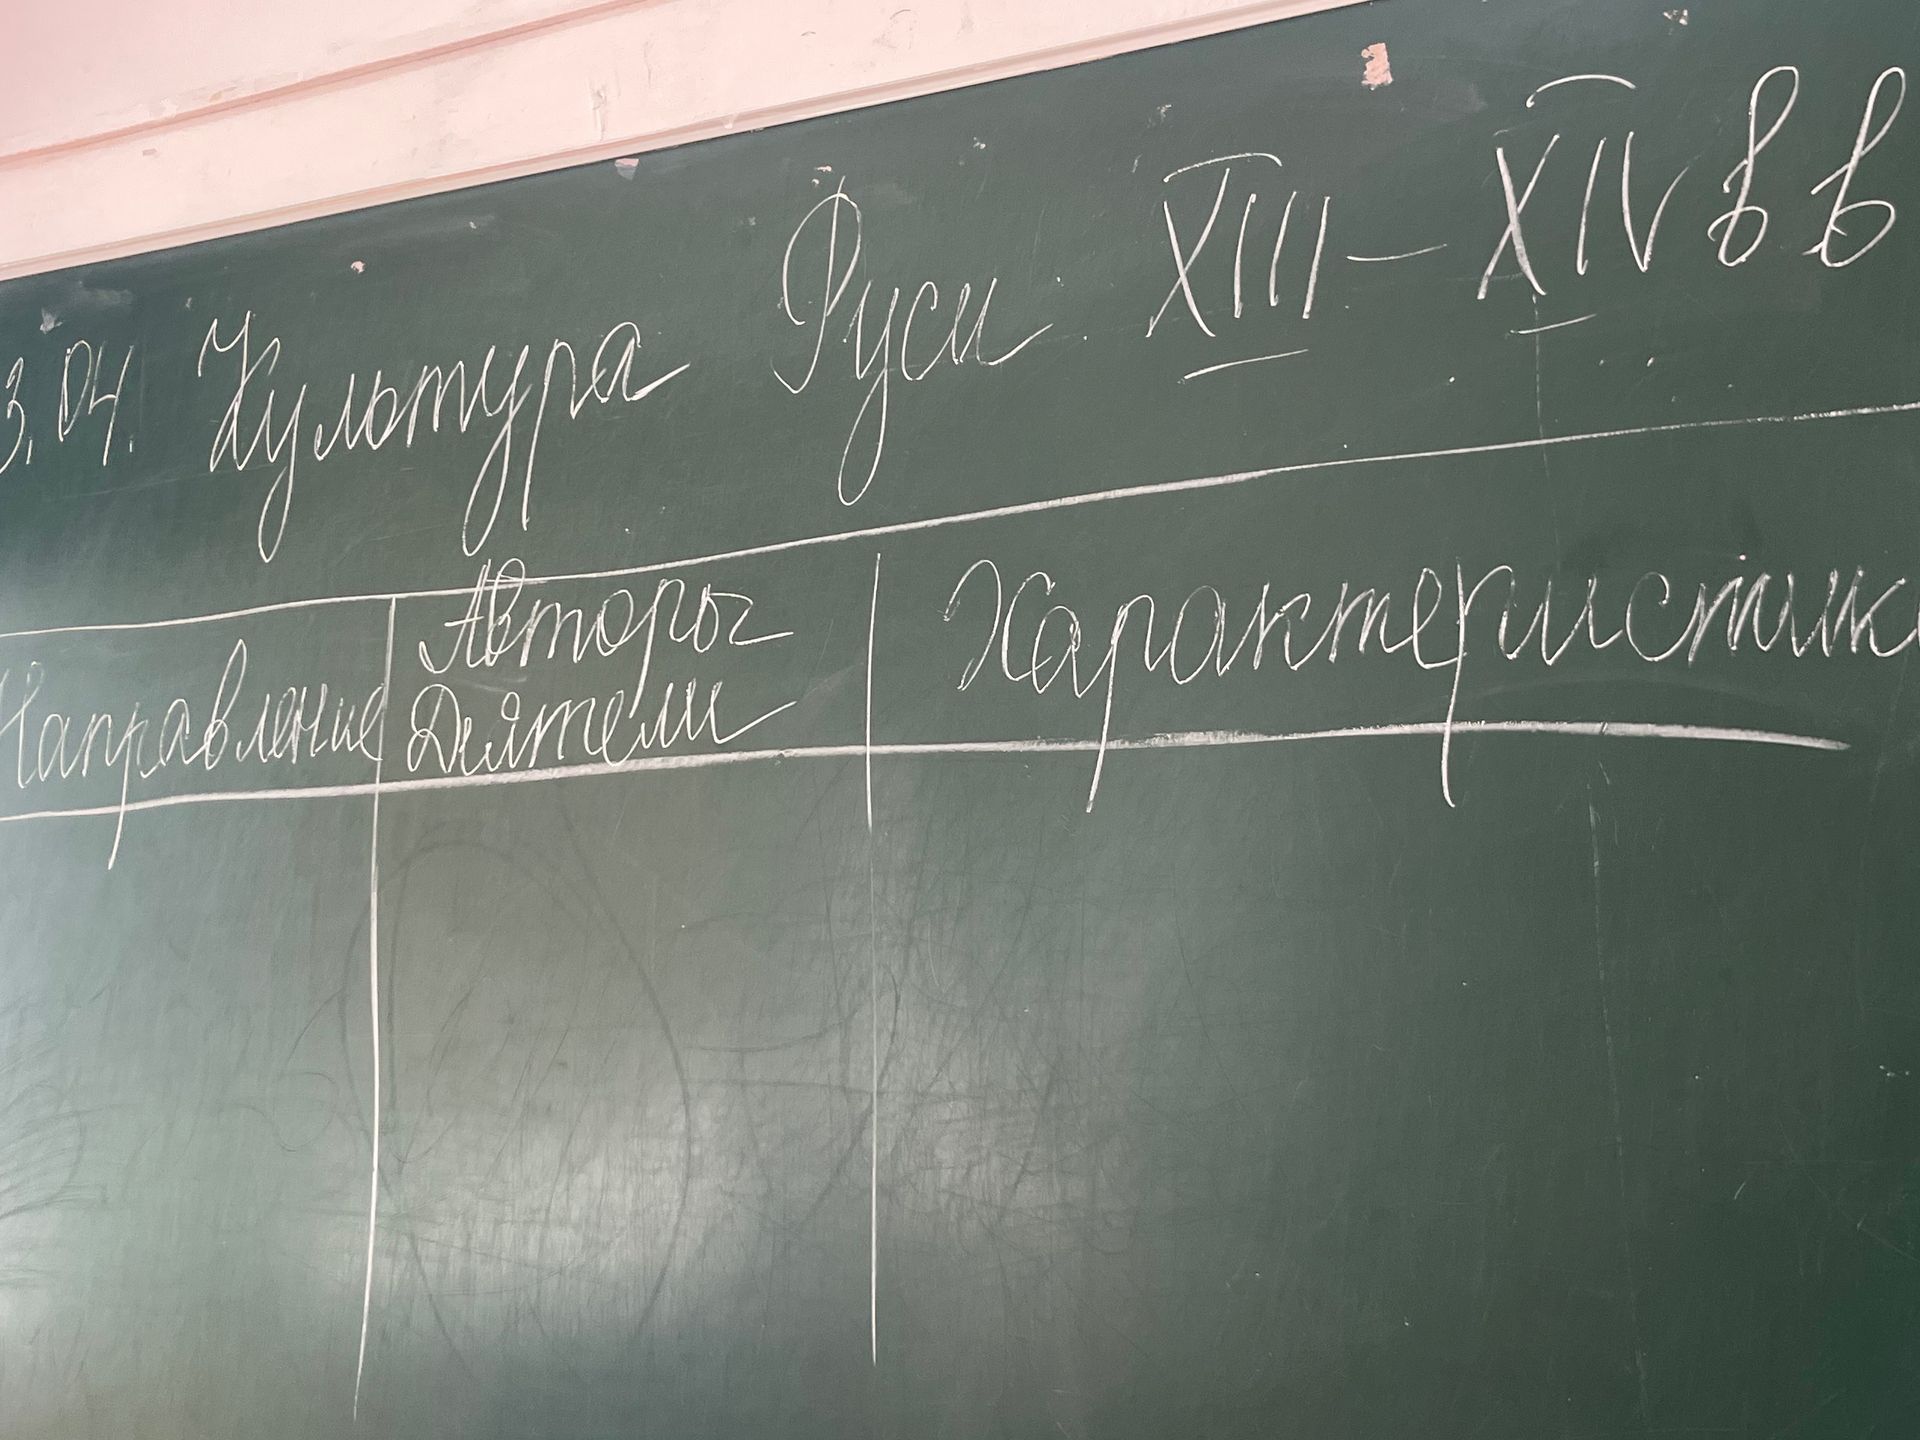 3.04. Культура Руси XIII - XIV вв
Направление
Авторы
Деятели
Характеристик